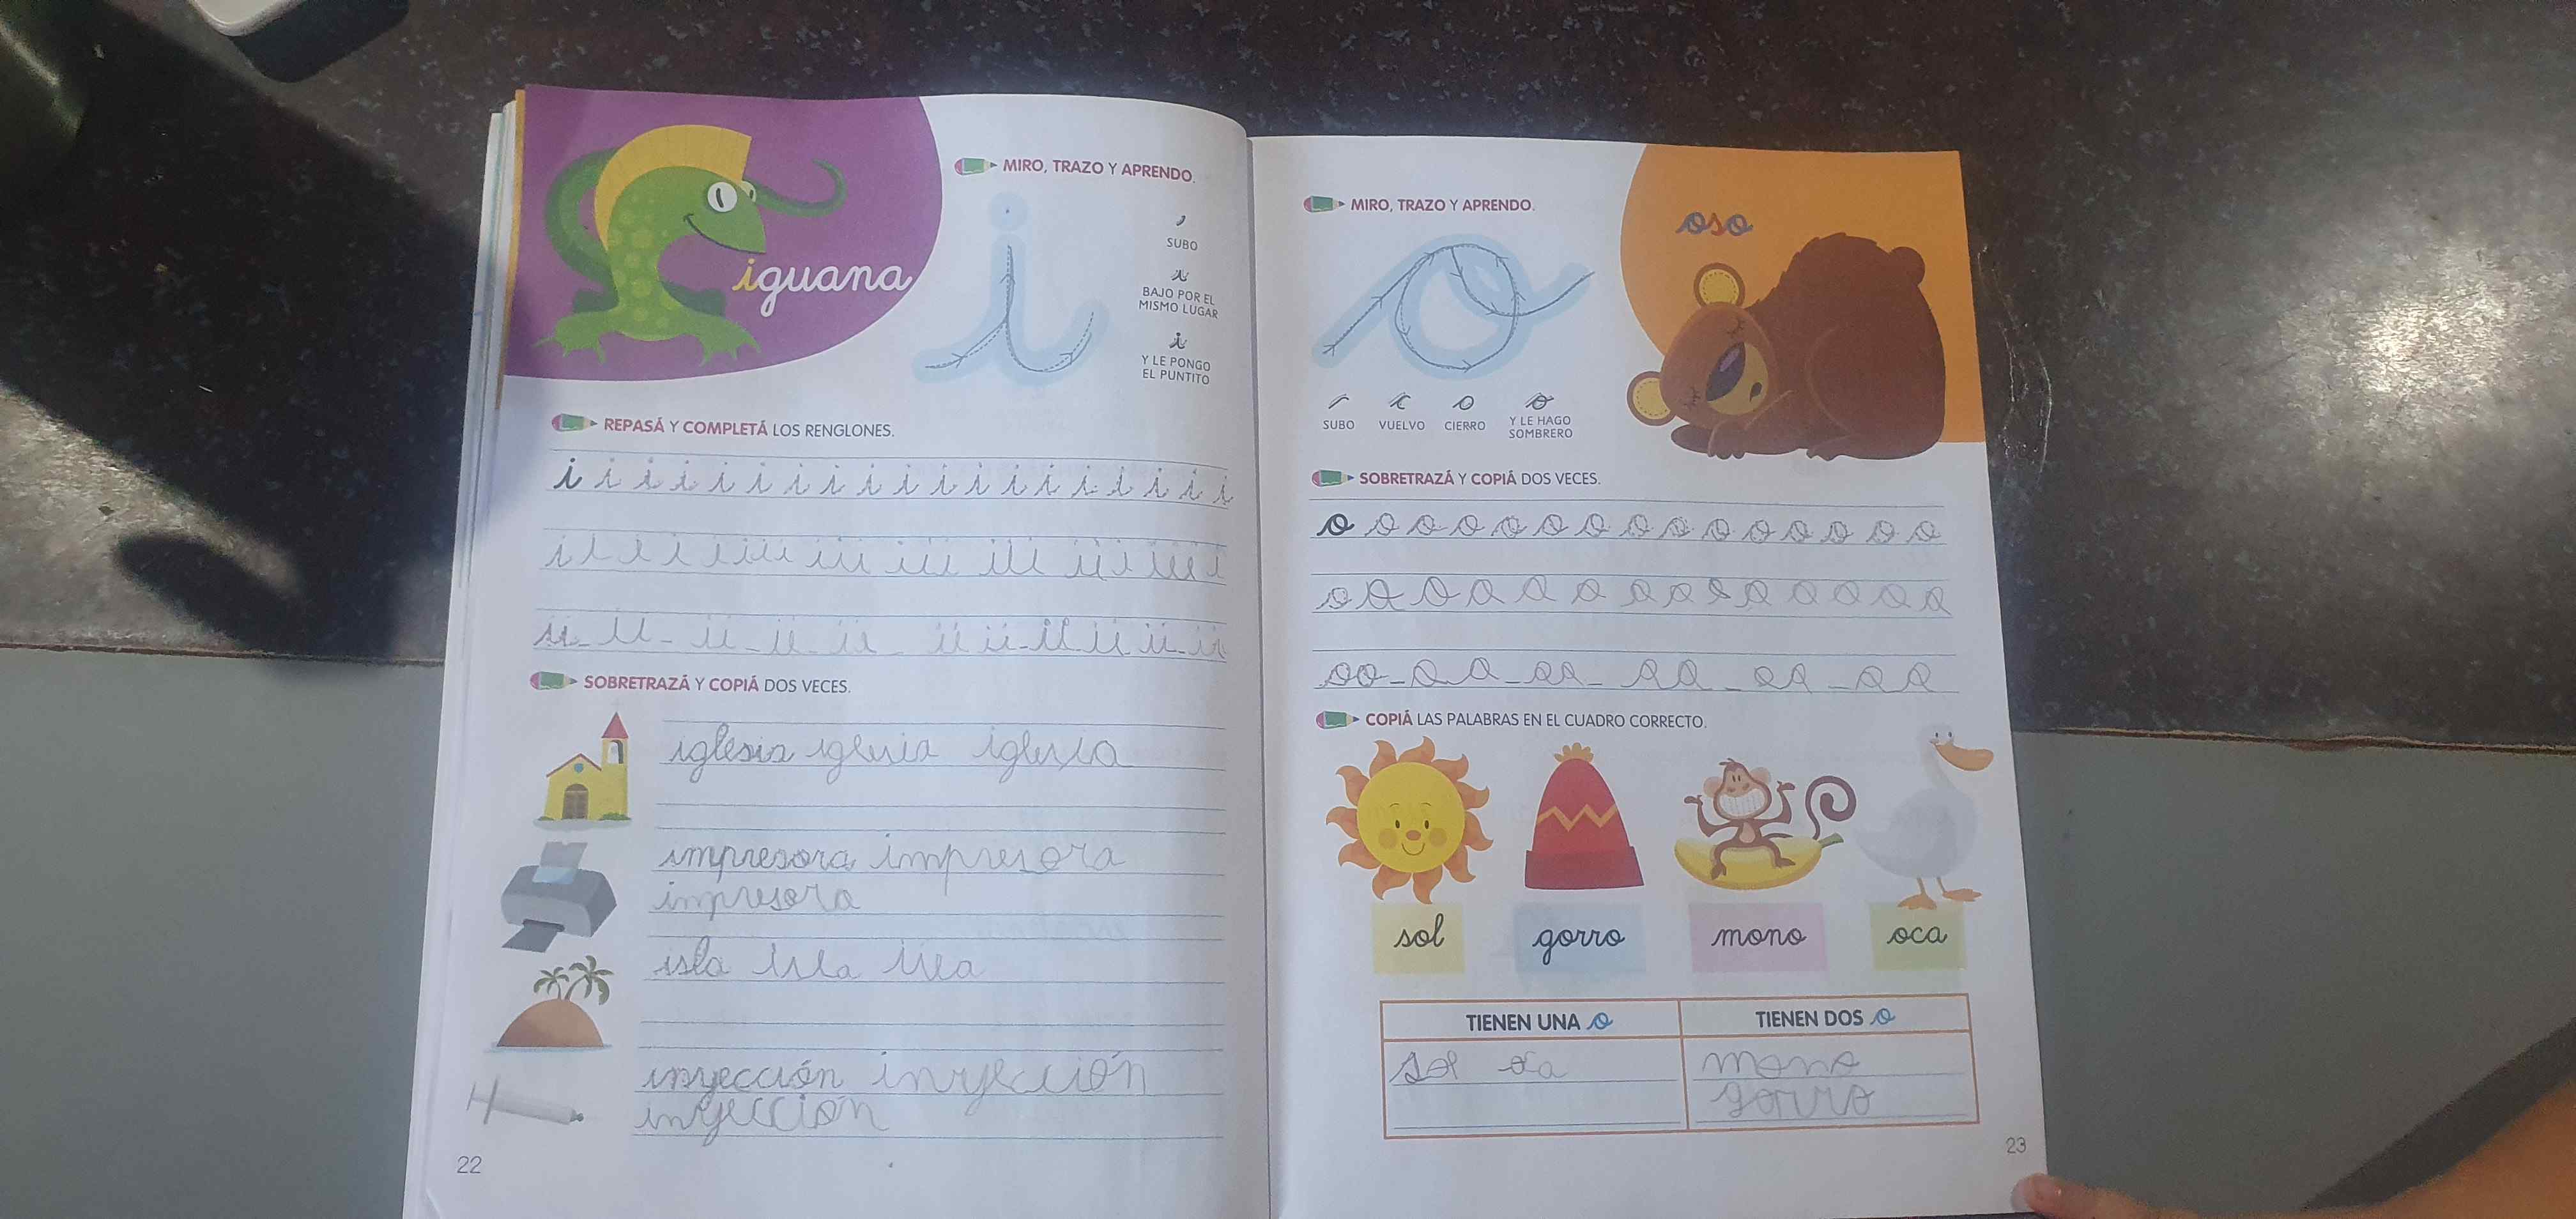 iguana
MIRO, TRAZO Y APRENDO.
i
SUBO
BAJO POR EL
MISMO LUGAR
Y LE PONGO
EL PUNTITO
REPASÁ Y COMPLETÁ LOS RENGLONES.
i i i i i i i i i i i i i i i i i i i
i i i i i iii iii iii iii iii iiii i
ii - ii - ii - ii - ii - ii ii - ii ii ii - ii
SOBRETRAZÁ Y COPIÁ DOS VECES.
iglesia iglesia iglesia
impresora impresora
impresora
isla isla isla
inyección inyección
inyección
22
MIRO, TRAZO Y APRENDO.
oso
o
SUBO VUELVO CIERRO Y LE HAGO
SOMBRERO
SOBRETRAZÁ Y COPIÁ DOS VECES.
o o o o o o o o o o o o o o o
o o o o o o o o o o o o o o
oo - oo - oo - oo - oo - oo
COPIÁ LAS PALABRAS EN EL CUADRO CORRECTO.
sol gorro mono oca
TIENEN UNA o TIENEN DOS o
sol oca mono
gorro
23